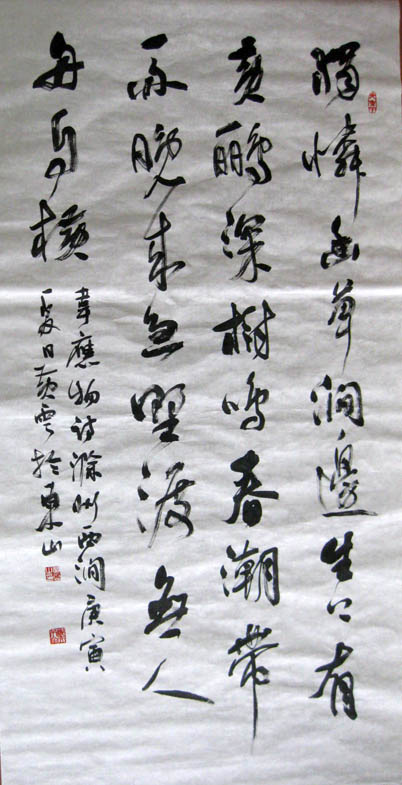 獨憐幽草澗邊生上有
黃鸝深樹鳴春潮帶
雨晚來急野渡無人
舟自橫
韋應物詩滁州西澗庚寅
夏日黃雲於東山